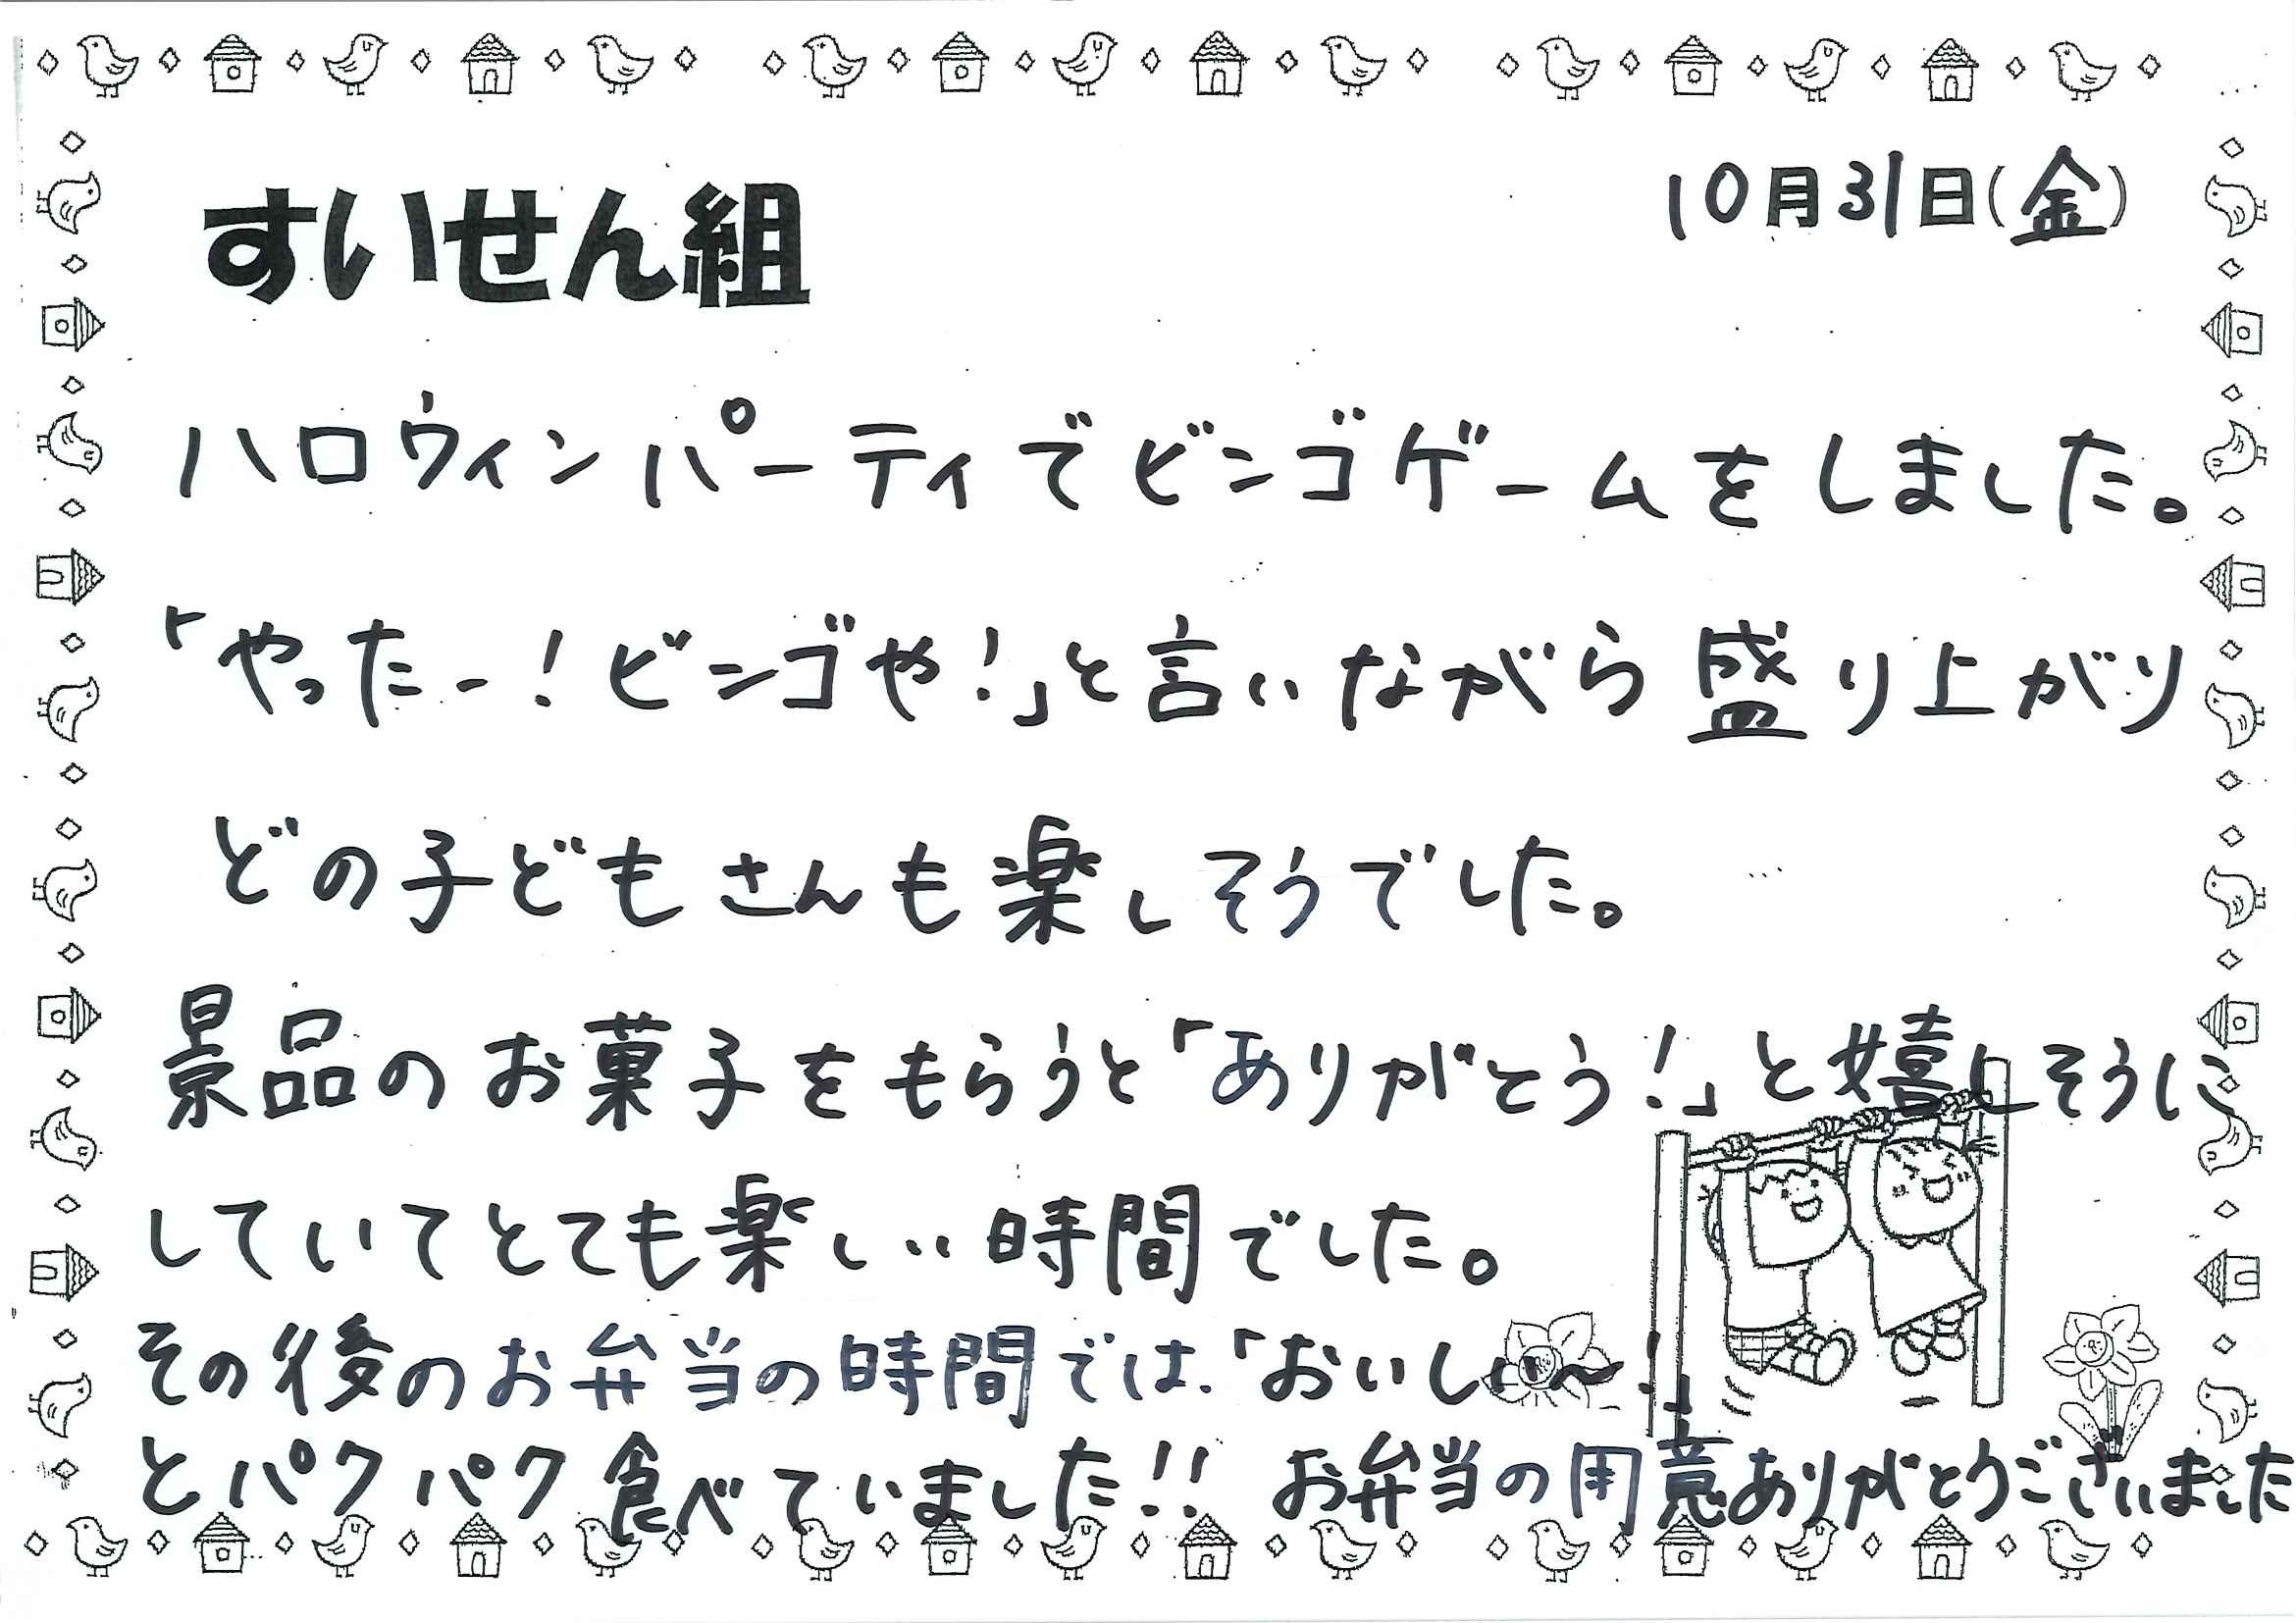 すいせん組
10月31日(金)
ハロウィンパーティでビンゴゲームをしました。
「やったー!ビンゴや!」と言いながら盛り上がり
どの子どもさんも楽しそうでした。
景品のお菓子をもらうと「ありがとう!」と嬉しそうに
していてとても楽しい時間でした。
その後のお弁当の時間では、「おいしい〜!」
とパクパク食べていました!! お弁当の用意ありがとうございました